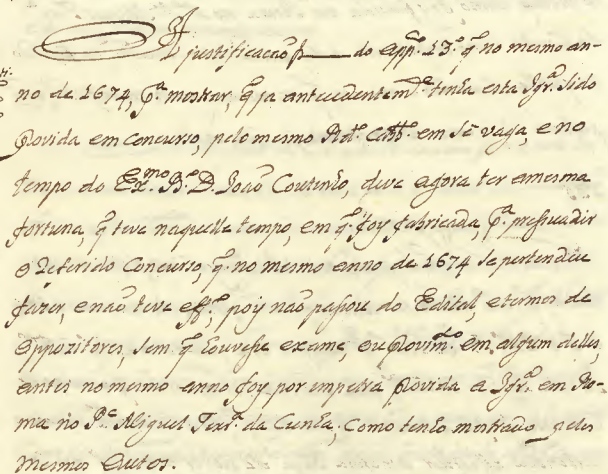 A justificação f do app. 13.º q̃ no mesmo an-
no de 1674, p.ª mostrar, q̃ ja antecedentem.te tinha esta Igr.ª sido
provida em concurso, pelo mesmo R.do Cabb.º em Sé vaga, e no
tempo do Ex.mo B.º D. João Coutinho, deve agora ter a mesma
fortuna, q̃ teve naquelle tempo, em q̃ foy fabricada, p.ª presuadir
o referido Concurso, q̃ no mesmo anno de 1674 se pertendeu
fazer, e não teve eff.º, poys não passou do Edital, e termos de
Oppozitores, sem q̃ houvesse exame, ou provim.to em algum delles,
antes no mesmo anno foy por impetra provida a Igr.ª em Ro-
ma no P.e Miguel Teix.ª da Cunha, como tenho mostrado pelos
mesmos Autos.